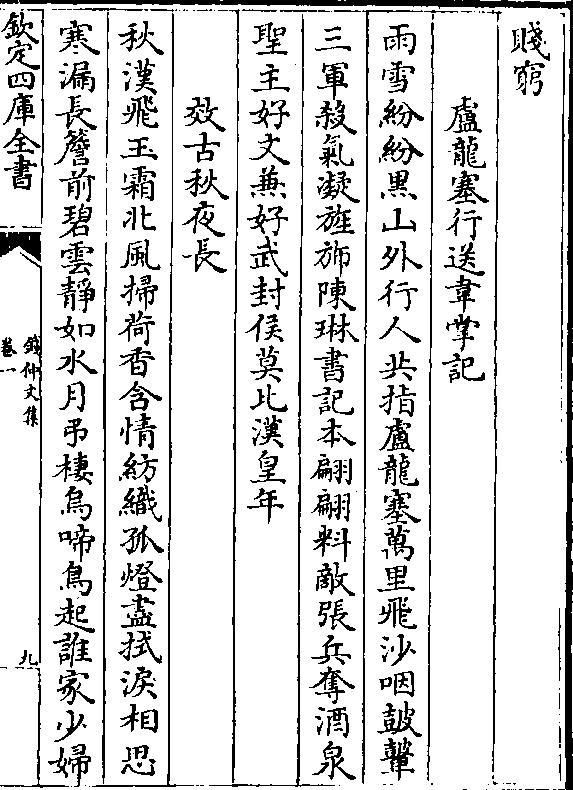 賤窮
盧龍塞行送韋掌記
雨雪紛紛黒山外行人共指盧龍塞萬里飛沙咽鼓鼙
三軍殺氣凝旌斾陳琳書記本翩翩料敵張兵奪酒泉
聖主好文兼好武封侯莫比漢皇年
效古秋夜長
秋漢飛玉霜北風掃荷香含情紡織孤燈盡拭淚相思
寒漏長簷前碧雲靜如水月弔棲烏啼鳥起誰家少婦
欽定四庫全書
錢仲文集
卷一
九